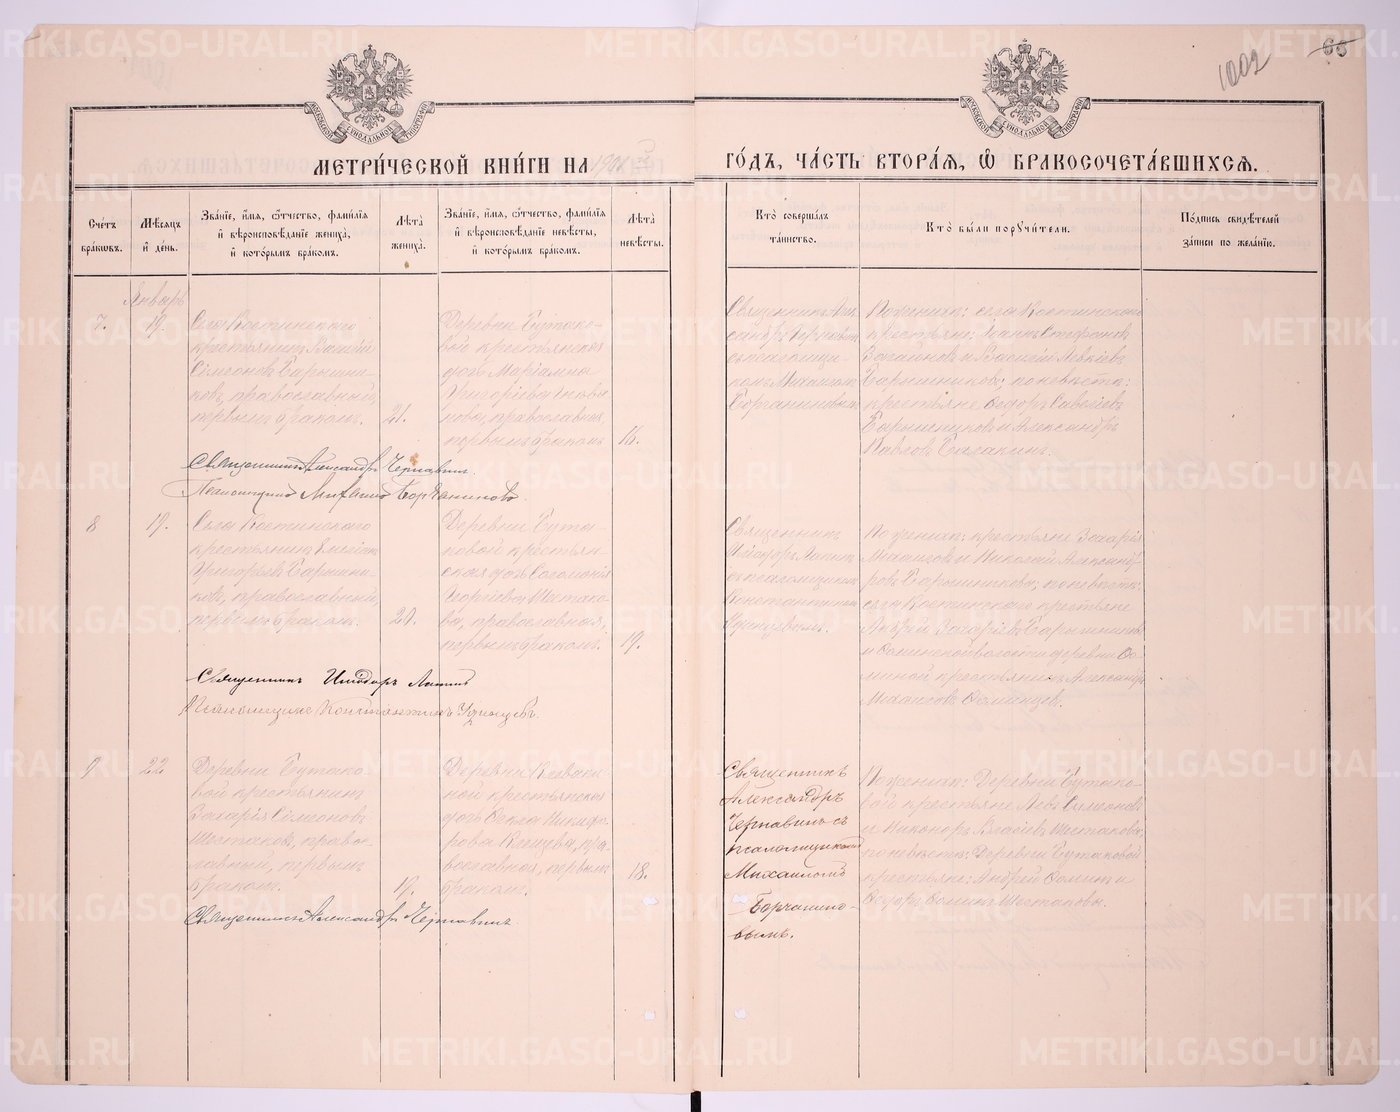 METRIKI.GASO-URAL.RU
1002
66
МОСКОВСКОЙ СѴНОДАЛЬНОЙ ТИПОГРАФІИ
МОСКОВСКОЙ СѴНОДАЛЬНОЙ ТИПОГРАФІИ
МЕТРИ́ЧЕСКОЙ КНИ́ГИ НА 190
ГО́ДЪ, ЧА́СТЬ ВТОРА́Ѧ, Ѽ БРАКОСОЧЕТА́ВШИХСѦ.
Сче́тъ
бра́ковъ.
Мѣ́сяцъ
и́ де́нь.
Зва́нїе, и́мѧ, ѻ҆́тчество, фамı́лїѧ
и҆ вѣроисповѣ́данїе жениха̀,
и҆ кото́рымъ бра́комъ.
Лѣ́та
жениха̀.
Зва́нїе, и́мѧ, ѻ҆́тчество, фамı́лїѧ
и҆ вѣроисповѣ́данїе невѣ́сты,
и҆ кото́рымъ бра́комъ.
Лѣ́та
невѣ́сты.
Кто̀ соверша́лъ
та́инство.
Кто̀ бы́ли порꙋчи́тели.
По́дпись свидѣ́телей
за́писи по жела́нїю.
Январь
7. 19.
Села Костинскаго
крестьянинъ Василій
Симеоновъ Барышни-
ковъ, православный,
первымъ бракомъ. 21.
Деревни Бутако-
вой крестьянская
дочь Маріамна
Григорьева
православная,
первымъ бракомъ 16.
Священникъ Алек-
сандръ Чернавинъ
съ псаломщи-
комъ Михаиломъ
Борчаниновымъ
По женихѣ: села Костинскаго
крестьяне: Іоаннъ Стефановъ
и Василій
Барышниковъ; по невѣстѣ:
крестьяне Ѳеодоръ Савеліевъ
Барышниковъ и Александръ
Павловъ
Священникъ Александръ Чернавинъ.
Псаломщикъ Михаилъ Борчаниновъ
8 19.
Села Костинскаго
крестьянинъ
Григорьевъ Барышни-
ковъ, православный,
первымъ бракомъ. 20.
Деревни Бута-
ковой крестьян-
ская дочь Соломонія
Георгіева Шестако-
ва, православная,
первымъ бракомъ. 19.
Священникъ
Исидоръ Лапинъ
съ псаломщикомъ
Константиномъ
По женихѣ: крестьяне Захарія
Михаиловъ и Николай Александ-
ровъ Барышниковы, по невѣстѣ:
села Костинскаго крестьяне
Андрей Захаріевъ Барышниковъ
и волости деревни
крестьянинъ Александръ
Михаиловъ
Священникъ Исидоръ Лапинъ
Псаломщикъ Константинъ
9 22
Деревни Бутако-
вой крестьянинъ
Захарія Симеоновъ
Шестаковъ, право-
славный, первымъ
бракомъ. 19.
Деревни
крестьянская
дочь Никифо-
рова пра-
вославная, первымъ
бракомъ. 18.
Священникъ
Александръ
Чернавинъ съ
псаломщикомъ
Михаиломъ
Борчанино-
вымъ.
По женихѣ: Деревни Бутако-
вой крестьяне Левъ Симеоновъ
и Никоноръ Шестаковы,
по невѣстѣ: Деревни Бутаковой
крестьяне: Андрей и
Ѳеодоръ Шестаковы.
Священникъ Александръ Чернавинъ